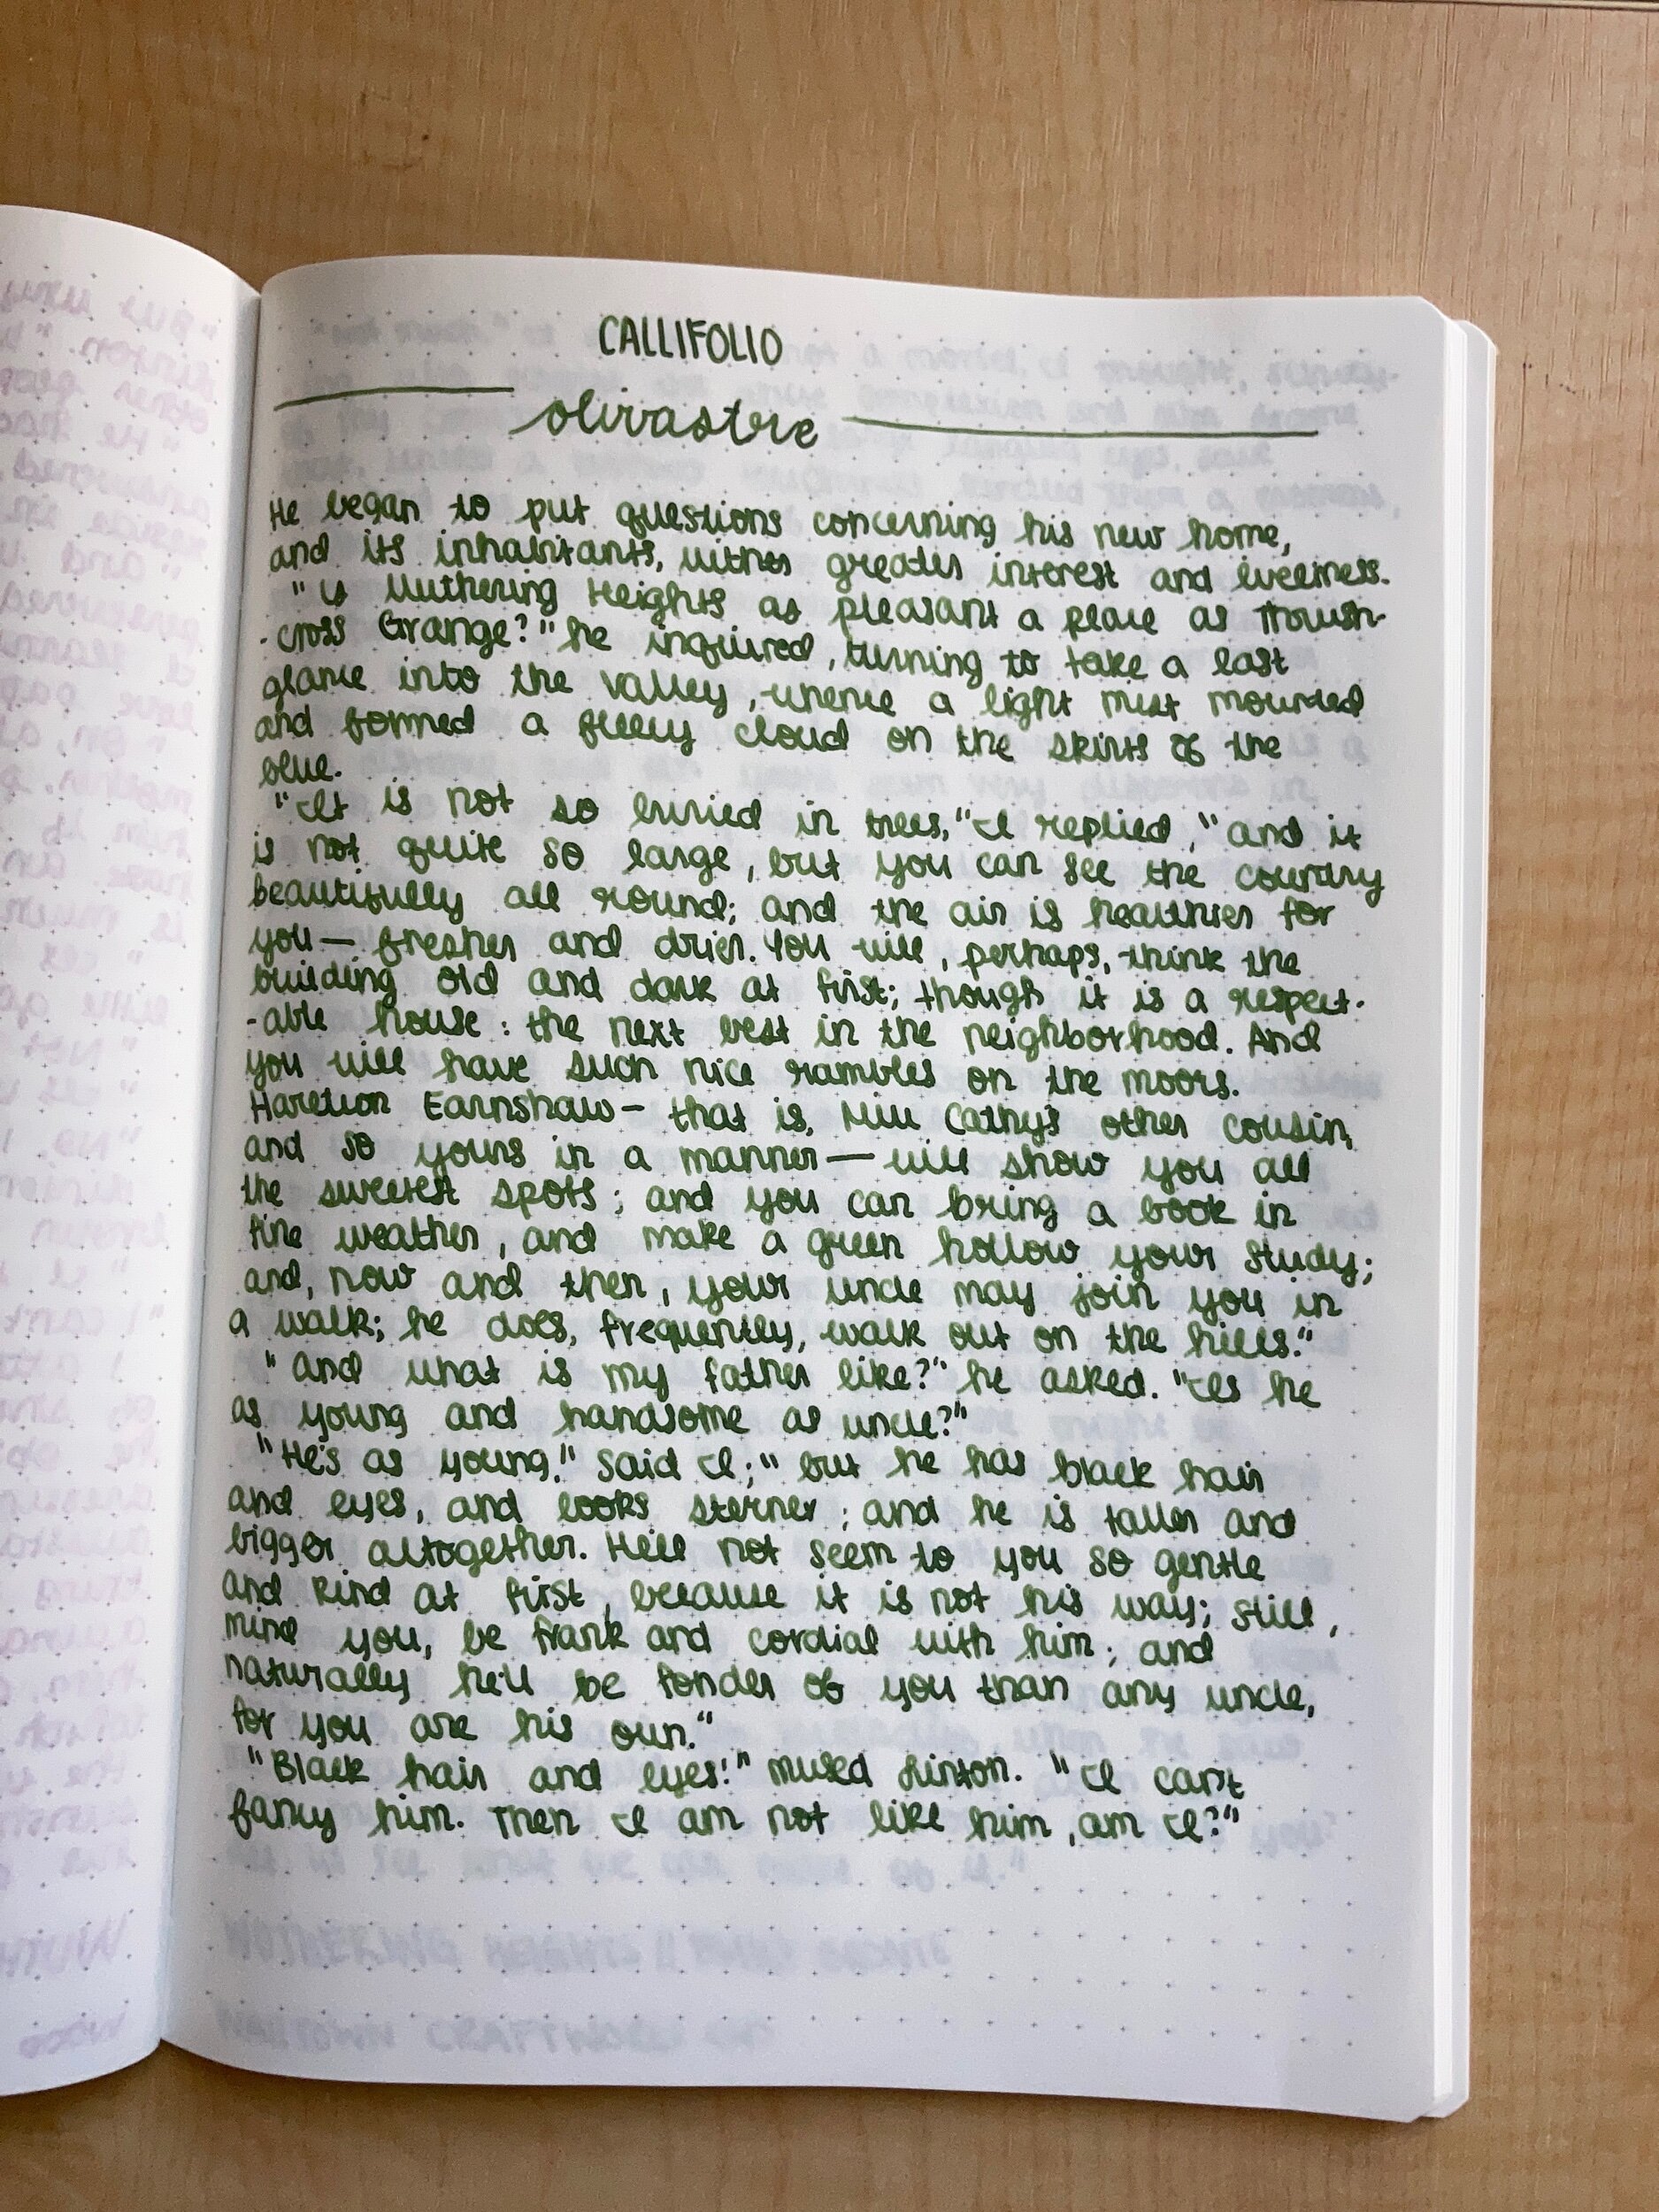 CALLIFOLIO
olivastre
He began to put questions concerning his new home,
and its inhabitants, with greater interest and liveliness.
"Is Wuthering Heights as pleasant a place as Thrush-
-cross Grange?" he inquired, turning to take a last
glance into the valley, whence a light mist mounted
and formed a fleecy cloud on the skirts of the
blue.
"It is not so buried in trees," I replied, "and it
is not quite so large, but you can see the country
beautifully all round; and the air is healthier for
you — fresher and drier. You will, perhaps, think the
building old and dark at first; though it is a respect-
-able house: the next best in the neighborhood. And
you will have such nice rambles on the moors.
Hareton Earnshaw - that is, Miss Cathy's other cousin,
and so yours in a manner — will show you all
the sweetest spots; and you can bring a book in
fine weather, and make a green hollow your study;
and, now and then, your uncle may join you in
a walk; he does, frequently, walk out on the hills."
"And what is my father like?" he asked. "Is he
as young and handsome as uncle?"
"He's as young," said I; "but he has black hair
and eyes, and looks sterner; and he is taller and
bigger altogether. He'll not seem to you so gentle
and kind at first, because it is not his way; still,
mind you, be frank and cordial with him; and
naturally he'll be fonder of you than any uncle,
for you are his own."
"Black hair and eyes!" mused Linton. "I can't
fancy him. Then I am not like him, am I?"